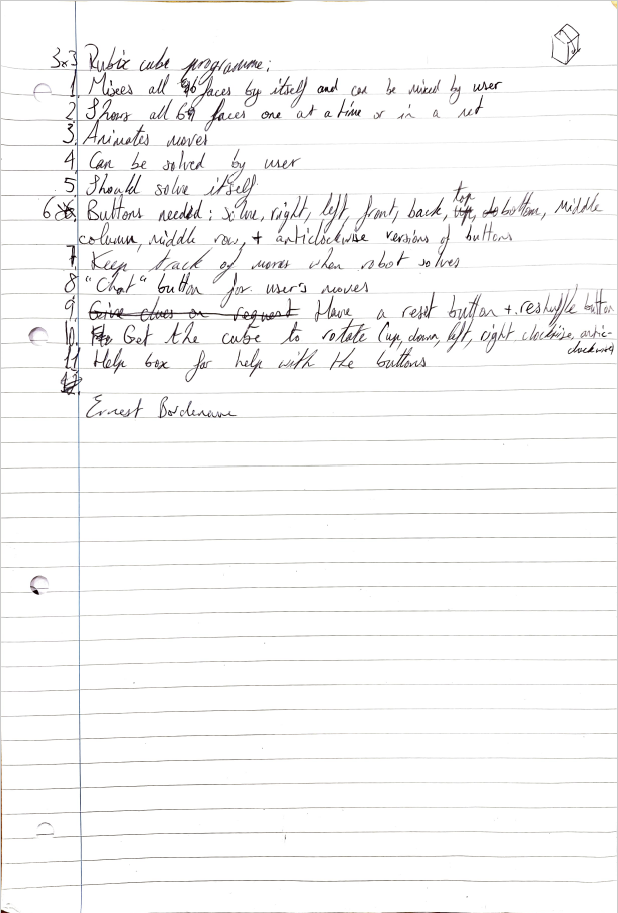 3x3 Rubix cube programme:
1. Mixes all 6 faces by itself and can be mixed by user
2. Shows all 6 faces one at a time or in a net
3. Animates moves
4. Can be solved by user
5. Should solve itself
6. Buttons needed: solve, right, left, front, back, top, bottom, middle
column, middle row, + anticlockwise versions of buttons
7. Keep track of moves when robot solves
8 "Chat" button for user's moves
9. Give clues on request Have a reset button + reshuffle button
10. Get the cube to rotate (up, down, left, right clockwise, antic-
clockwise)
11 Help box for help with the buttons
12.
Ernest